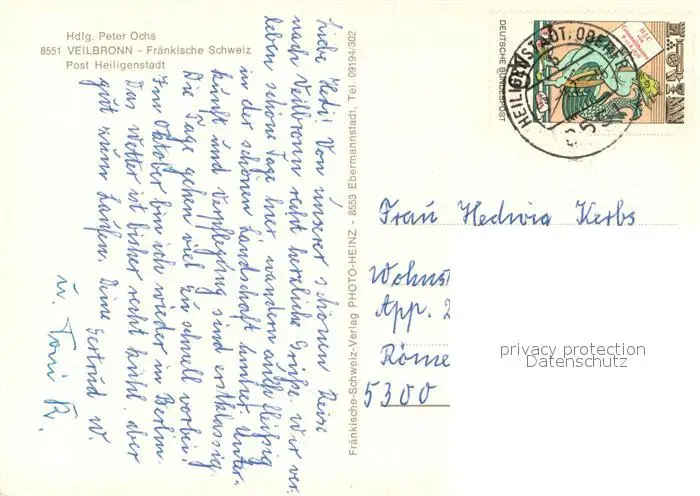 Hdlg. Peter Ochs
8551 VEILBRONN - Fränkische Schweiz
Post Heiligenstadt
Liebe Hedi! Von unserer schönen Reise
nach Veilbronn recht herzliche Grüße. Wir ver-
leben schöne Tage hier wandern auch fleißig
in der schönen Landschaft umher. Unter-
kunft und Verpflegung sind erstklassig.
Die Tage gehen viel zu schnell vorbei.
Im Oktober bin ich wieder in Berlin.
Das Wetter ist bisher recht kühl aber
gut zum Laufen. Deine Gertrud W.
u. Toni R.
Fränkische-Schweiz-Verlag PHOTO-HEINZ - 8553 Ebermannstadt, Tel. 09194/302
DEUTSCHE BUNDESPOST
Frau Hedwig Kerbs
Wohnst
App. 2
Röme
5300
privacy protection
Datenschutz